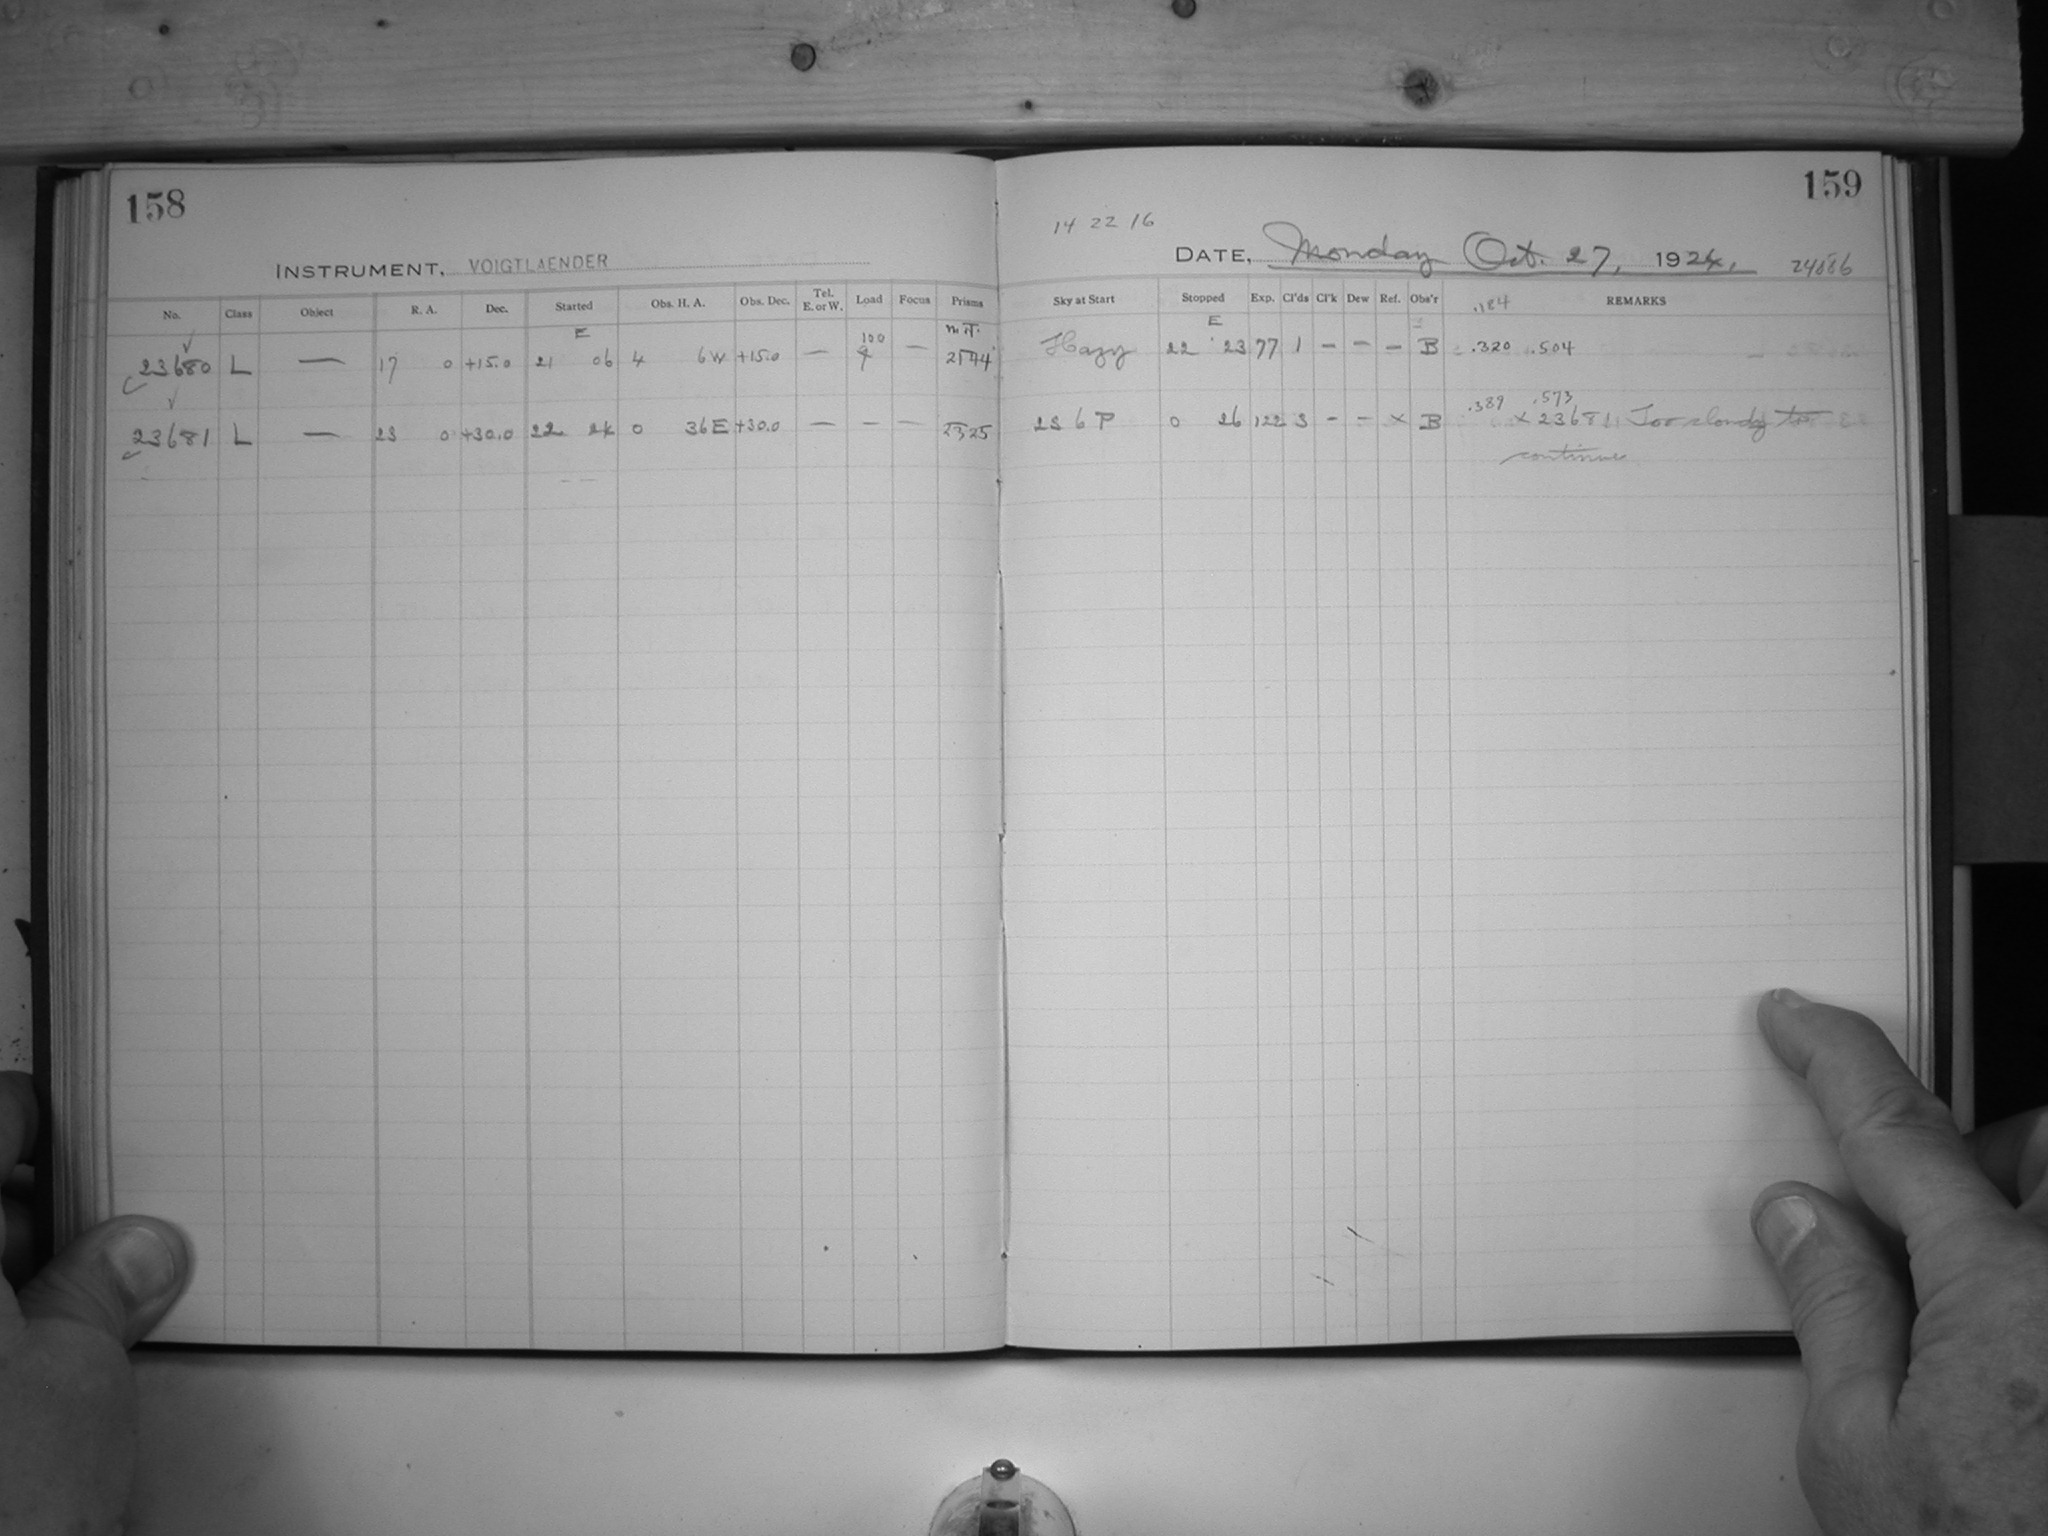 158
INSTRUMENT, VOIGTLAENDER
No. Class Object R. A. Dec. Started Obs. H. A. Obs. Dec. Tel. E. or W. Load Focus Prisms
E 100 M.T.
23680 L — 17 0 +15.0 21 06 4 6 W +15.0 — — 2144
23681 L — 23 0 +30.0 22 24 0 36 E +30.0 — — — 2325
159
14 22 16
DATE, Monday Oct. 27, 1924,
Sky at Start Stopped Exp. Cl'ds Cl'k Dew Ref. Obs'r .184 REMARKS
E
Hazy 22 23 77 1 — — — B .320 .504
.389 .573
23 6 P 0 26 122 3 — — x B x 23681 Too cloudy to
continue